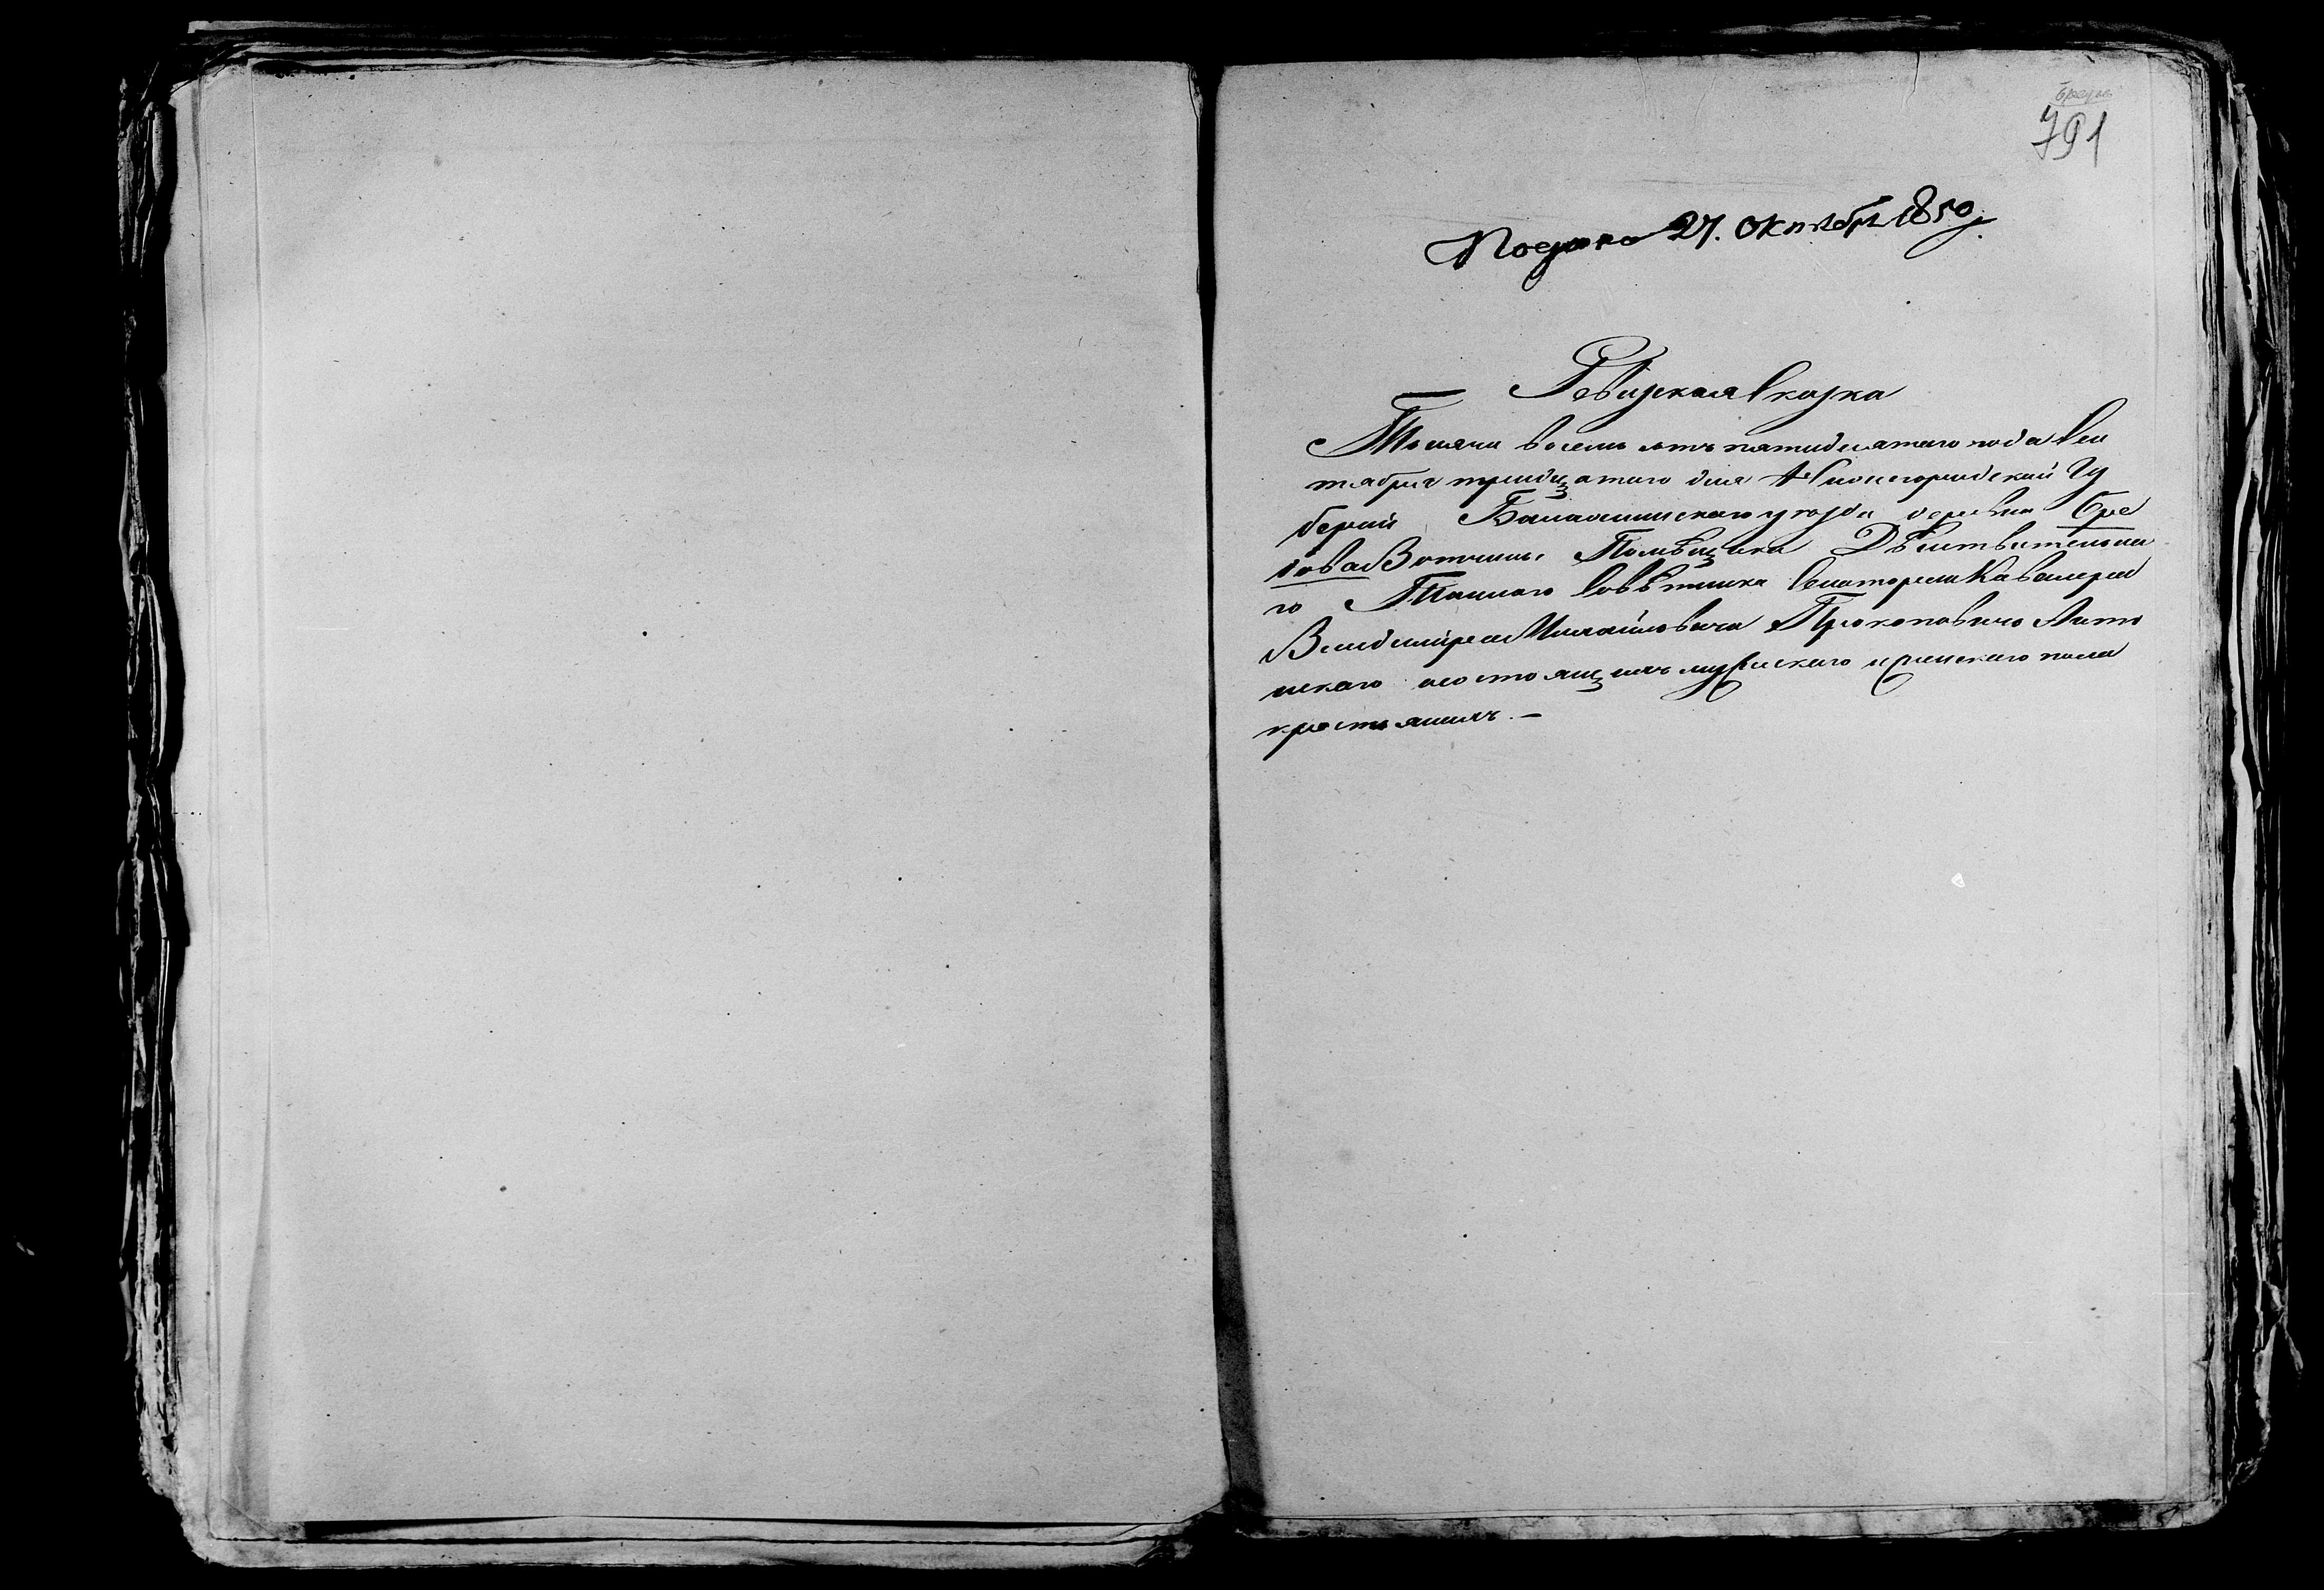 791
Подана 27. Октября 1850 г.
Ревизская Сказка
Тысяча восемь сотъ пятидесятаго года Сен
тября тридцатаго дня Нижегородской Гу
берніи Балахнинскаго уезда деревни Бре
хова Вотчины Помѣщика Дѣйствительна
го Тайнаго Совѣтника Сенатора и Кавалера
Владиміра Михайловича Прокоповича Анто
нскаго о состоящихъ мужескаго и женскаго пола
крестьянахъ. —